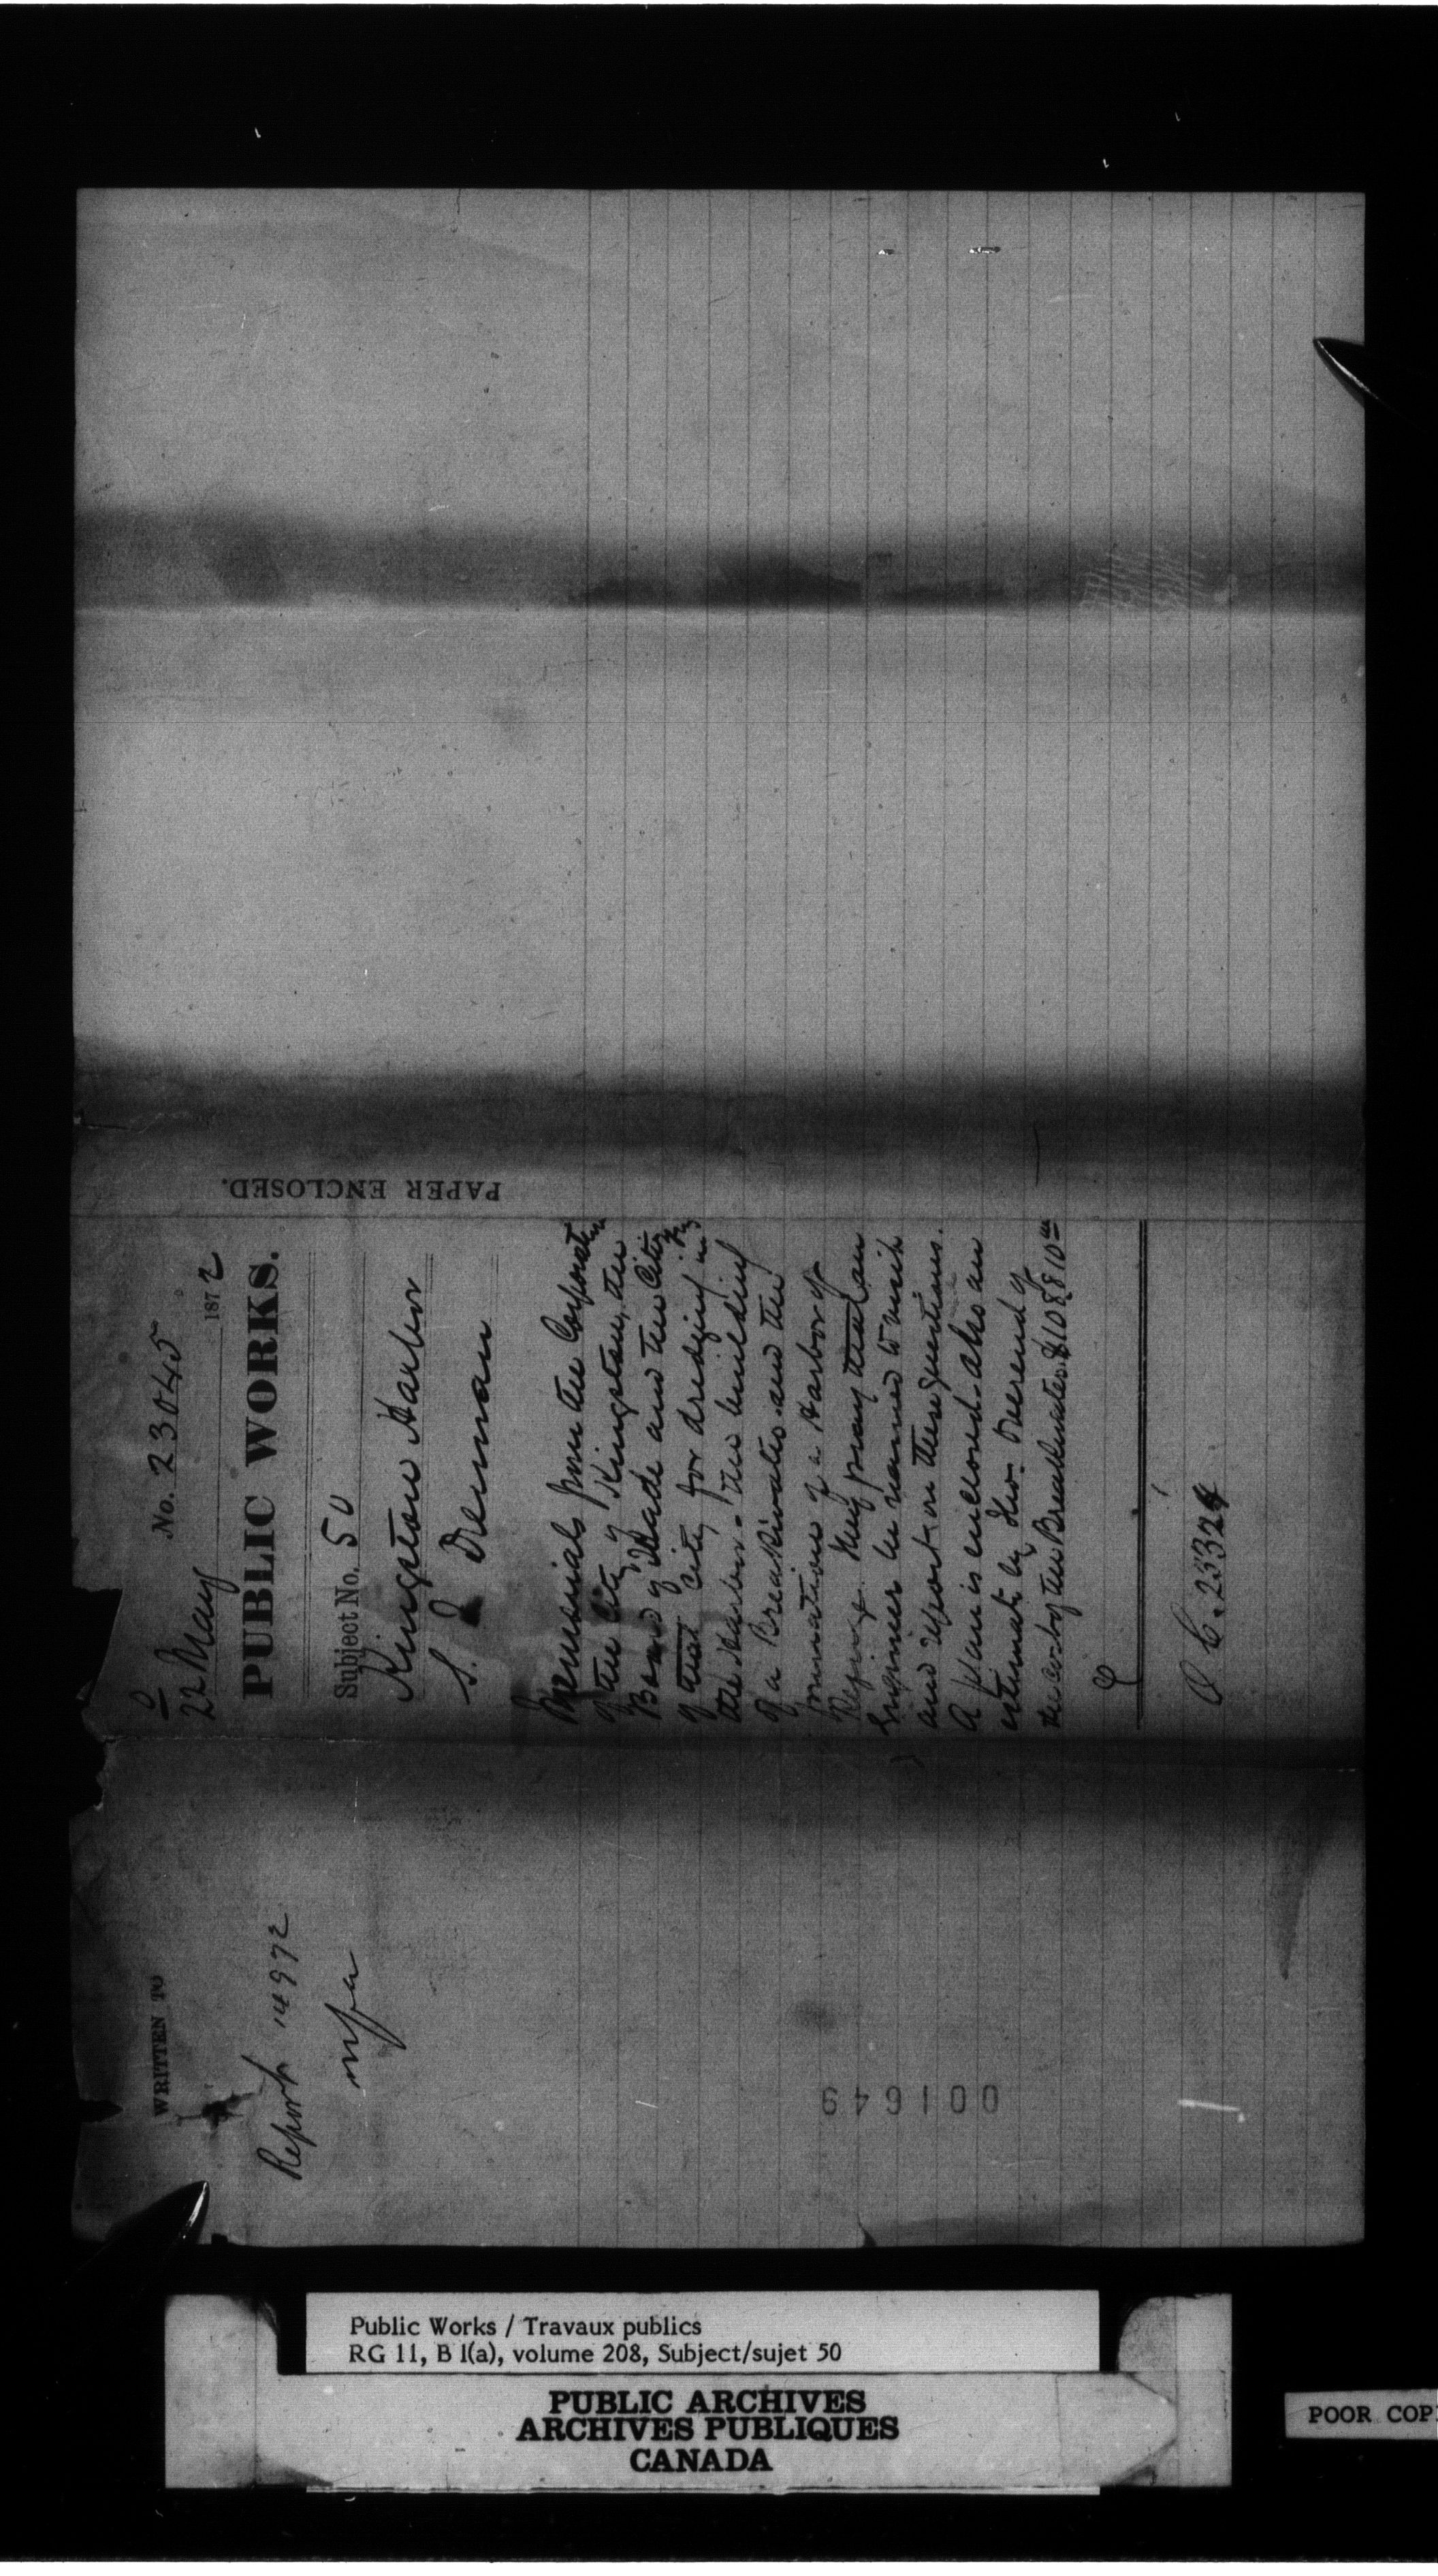 WRITTEN TO
Report 14972
No. 23045
22 May 1872
PUBLIC WORKS.
Subject No. 50
Kingston Harbor
S. Drennan
Memorials from the Corporation
of the City of Kingston, the
Board of Trade and the Citizens
of that City for dredging in
the Harbor - the building
of a Breakwater and the
formation of a Harbor of
Refuge. They pray that an
Engineer be named to visit
and report on these questions.
A plan is enclosed - also an
estimate by Geo. of
the cost of the Breakwater $108810
O C. 25324
PAPER ENCLOSED.
001649
Public Works / Travaux publics
RG 11, B 1(a), volume 208, Subject/sujet 50
PUBLIC ARCHIVES
ARCHIVES PUBLIQUES
CANADA
POOR COP